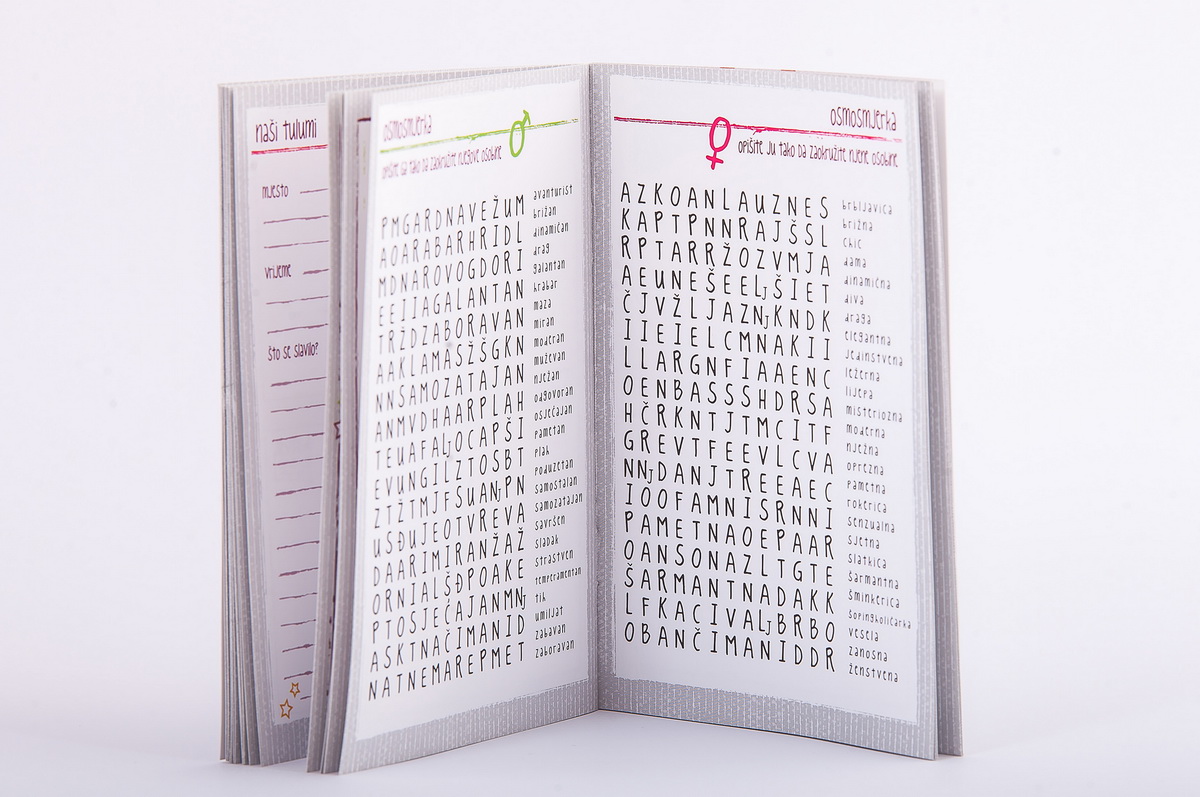 naši tulumi
mjesto
vrijeme
što se slavilo?
osmosmjerka
opišite ga tako da zaokružite njegove osobine
PMGARDNAVEŽUM
AOARABARHRIDL
MDNAROVOGDORI
EEIIAGALANTAN
TRŽDZABORAVAN
AAKLAMASŽŠGKN
NNSAMOZATAJAN
ANMVDHAARPLAH
TEUAFALJOCAPŠI
EVUNGILZTOSBT
ZTŽTMJFSUANJPN
USĐUJEOTVREVA
DAARIMIRANŽAŽ
ORNIALŠĐPOAKE
PTOSJEĆAJANMNJ
ASKTNAČIMANID
NATNEMAREPMET
avanturist
brižan
dinamičan
drag
galantan
hrabar
maza
miran
moderan
muževan
nježan
odgovoran
osjećajan
pametan
plah
poduzetan
samostalan
samozatajan
savršen
sladak
strastven
temperamentan
tih
umiljat
zabavan
zaboravan
osmosmjerka
opišite ju tako da zaokružite njene osobine
AZKOANLAUZNES
KAPTPNNRAJŠSL
RPTARRŽOZVMJA
AEUNEŠEELJŠIET
ČJVŽLJAZNJKNDK
IIEIELCMNAKII
LLARGNFIAAENC
OENBASSSHDRSA
HČRKNTJTMCITF
GREVTFEEVLCVA
NNJDANJTREEAEC
IOOFAMNISRNNI
PAMETNAOEPAAR
OANSONAZLTGTE
ŠARMANTNADAKK
LFKACIVALJBRBO
OBANČIMANIDDR
brbljavica
brižna
chic
dama
dinamična
diva
draga
elegantna
jedinstvena
ležerna
lijepa
misteriozna
moderna
nježna
oprezna
pametna
rokerica
senzualna
sjetna
slatkica
šarmantna
šminkerica
šopingholičarka
vesela
zanosna
ženstvena